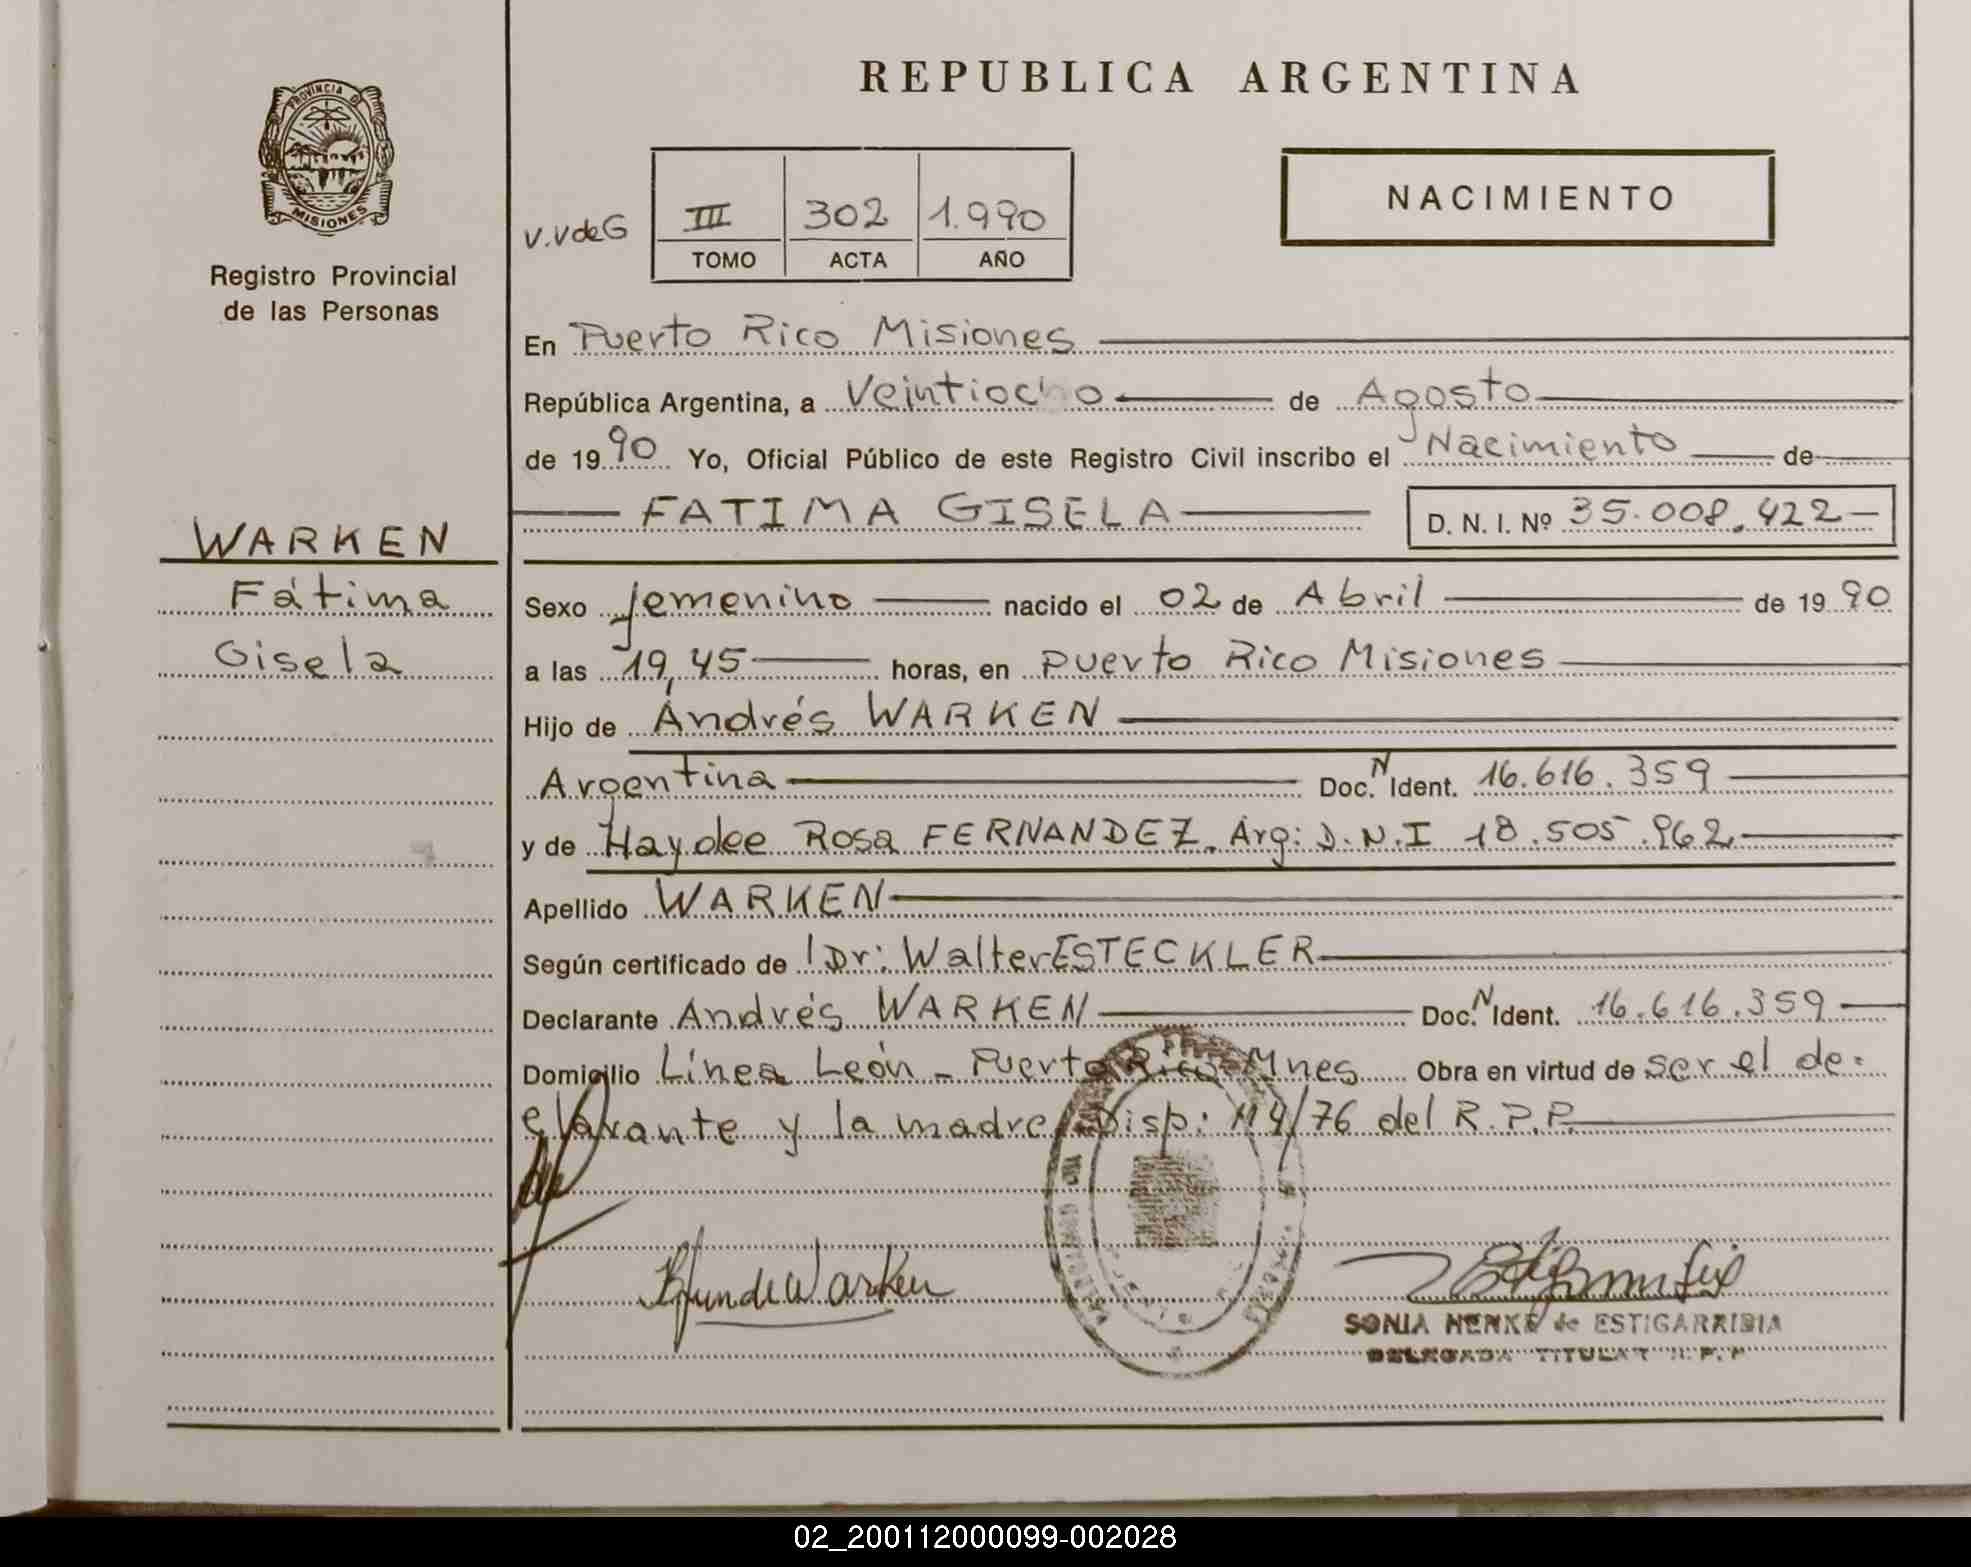 REPUBLICA ARGENTINA
PROVINCIA DE
MISIONES
Registro Provincial
de las Personas
NACIMIENTO
V.VdeG III 302 1.990
TOMO ACTA AÑO
En Puerto Rico Misiones
República Argentina, a Veintiocho de Agosto
de 1990 Yo, Oficial Público de este Registro Civil inscribo el Nacimiento de
FATIMA GISELA D. N. I. Nº 35.008.422
WARKEN
Fátima
Gisela
Sexo femenino nacido el 02 de Abril de 1990
a las 19,45 horas, en Puerto Rico Misiones
Hijo de Andrés WARKEN
Argentina Doc. N Ident. 16.616.359
y de Haydee Rosa FERNANDEZ. Arg: D.N.I 18.505.962
Apellido WARKEN
Según certificado de Dr: Walter ESTECKLER
Declarante Andrés WARKEN Doc. N Ident. 16.616.359
Domicilio Línea León - Puerto Rico Mnes Obra en virtud de ser el de-
clarante y la madre Disp: 114/76 del R.P.P.
Warken
SONIA HENKE de ESTIGARRIBIA
DELEGADA TITULAR R.P.P
02_200112000099-002028